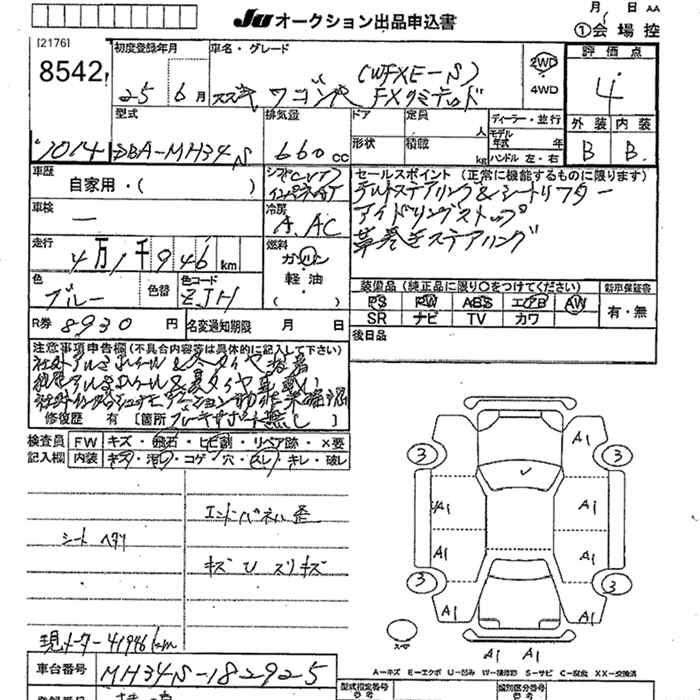 JU オークション出品申込書
月 日 AA
①会場控
[2176]
8542
初度登録年月
25 6月
車名・グレード
(WFXE-S)
スズキ ワゴンR FXリミテッド
2WD
4WD
評価点
4
外装 内装
B B
7014
型式
DBA-MH34S
排気量
660cc
ドア
形状
定員
人
積載
kg
ディーラー・並行
モデル年式 年
ハンドル 左・右
車歴
自家用・( )
シフト CVT
インパネAT
セールスポイント (正常に機能するものに限ります)
チルトステアリング&シートリフター
アイドリングストップ
革巻きステアリング
車検
ー
冷房
A.AC
走行
4万1千946km
燃料
ガソリン
軽油
( )
色
ブルー
色替
色コード
ZJH
装備品 (純正品に限り○をつけてください)
PS PW ABS エアB AW
SR ナビ TV カワ
新車保証書
有・無
R券 8930円
名変通知期限 月 日
後日品
注意事項申告欄 (不具合内容等は具体的に記入して下さい)
修復歴 有 [箇所
検査員記入欄
FW キズ・飛石・ヒビ割・リペア跡・×要
内装 キズ・汚レ・コゲ・穴・スレ・キレ・破レ
エンドパネル歪
シート ヘタリ
キズ U スリキズ
現メーター 41946km
3 A1 3
A1 A1
A1 A1
3 3
A1 A1
A1 A1
スペア
A-キズ E-エクボ U-凹み W-補修跡 S-サビ C-腐食 XX-交換済
車台番号
MH34S-182925
型式指定番号
類別区分番号